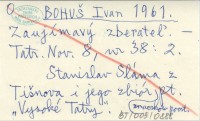 O BOHUŠ Ivan 1961.
Zaujímavý zberateľ. –
Tatr. Nov. 8, nr 38 : 2.
Stanislav Sláma z
Tišnova i jego zbiór pt.
"Vysoké Tatry".
BT/003/0288